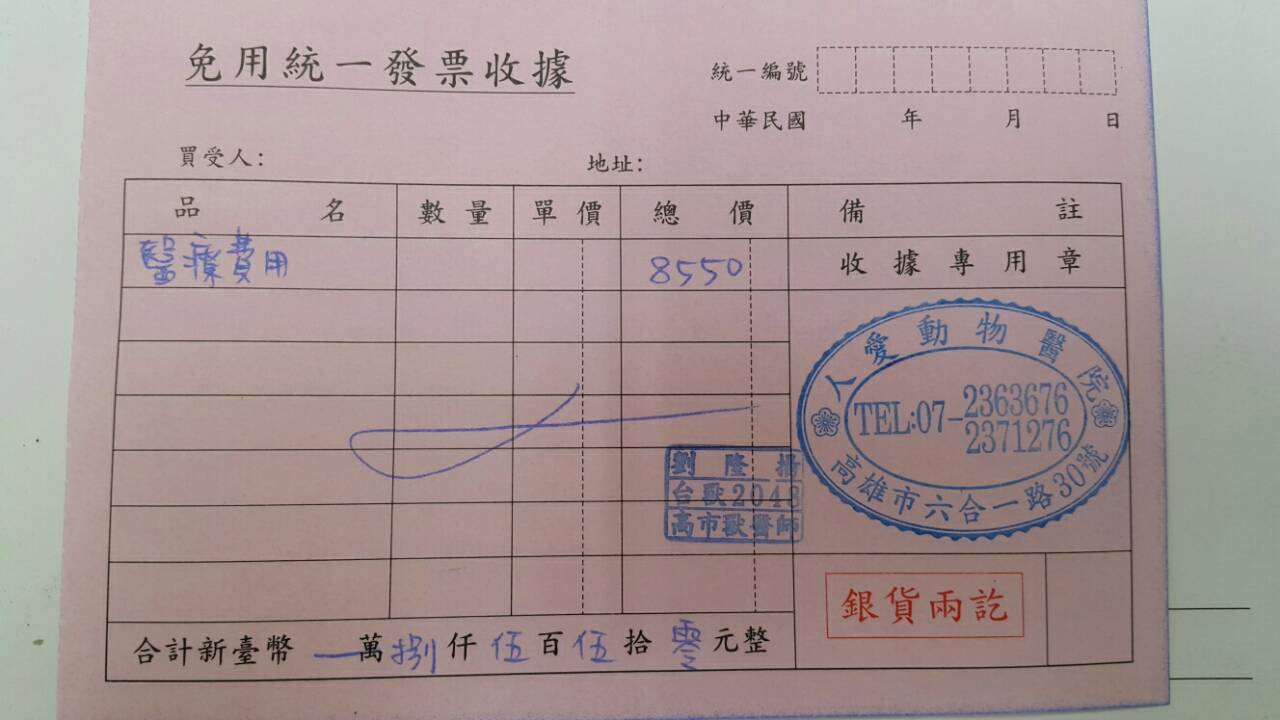 免用統一發票收據
統一編號
中華民國 年 月 日
買受人：
地址：
品名 數量 單價 總價 備註
醫療費用 8550 收據專用章
人愛動物醫院
TEL:07-2363676
2371276
高雄市六合一路30號
劉隆揚
台獸2048
高市獸醫師
銀貨兩訖
合計新臺幣 一萬捌仟伍百伍拾零元整